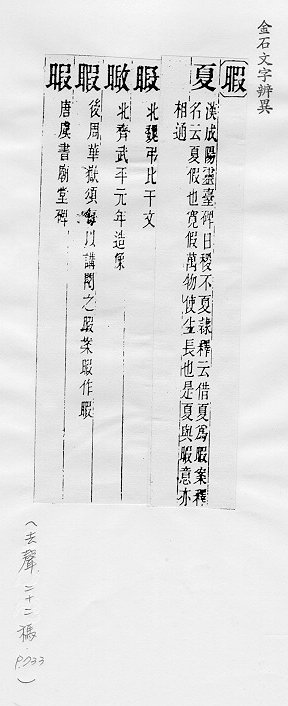 金石文字辨異
暇
夏 漢成陽靈臺碑日稷不夏隸釋云借夏為暇案釋
名云夏假也寬假萬物使生長也是夏與暇意亦
相通
暇 北魏弔比干文
暾 北齊武平元年造象
暇 後周華嶽頌每以講閱之暇案暇作暇
暇 唐虞書廟堂碑
(去聲 二十二禡 P.733)